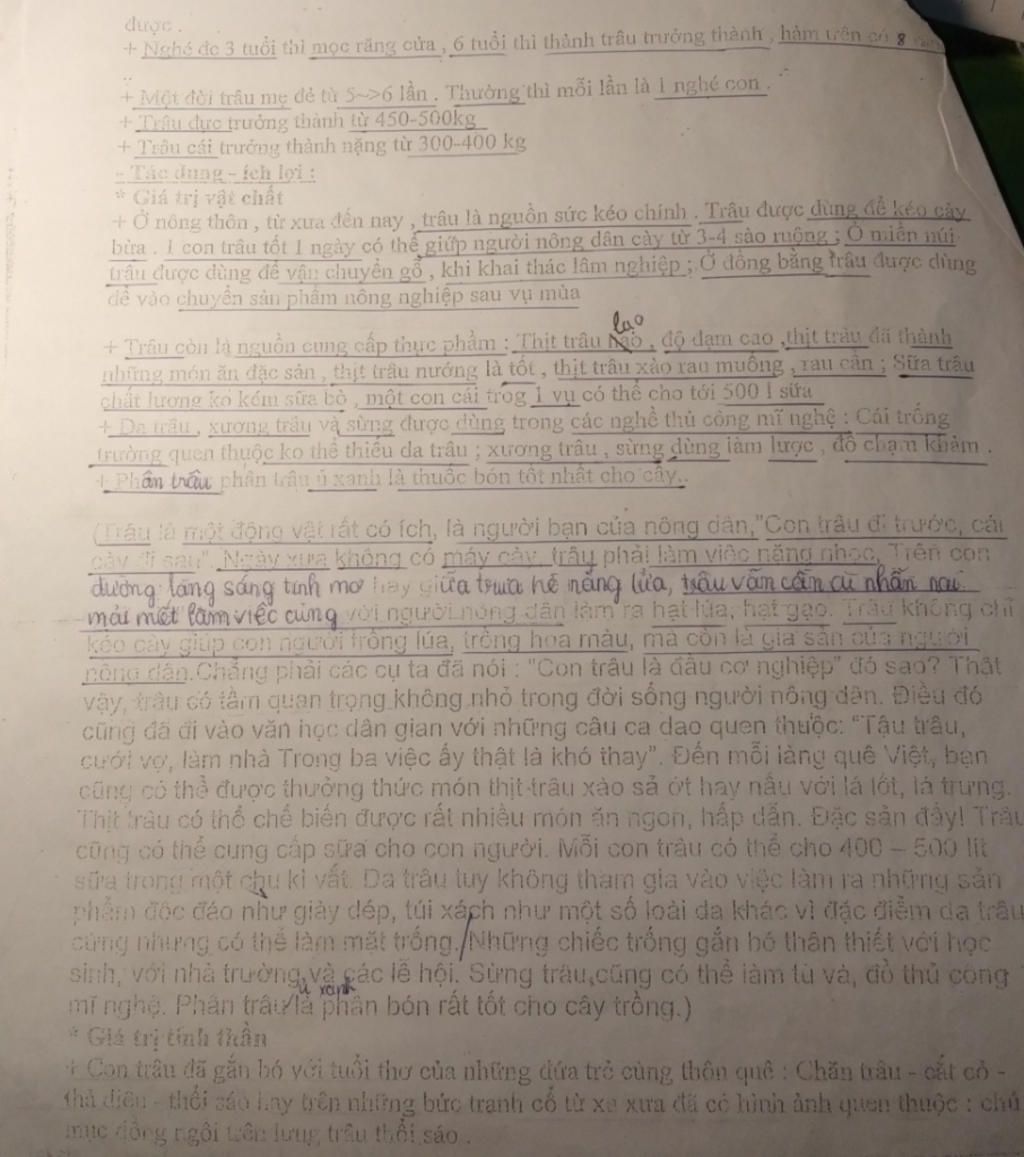 được .
+ Nghé đc 3 tuổi thì mọc răng cửa , 6 tuổi thì thành trâu trưởng thành , hàm trên có 8
+ Một đời trâu mẹ đẻ từ 5~>6 lần . Thường thì mỗi lần là 1 nghé con .
+ Trâu đực trưởng thành từ 450-500kg
+ Trâu cái trưởng thành nặng từ 300-400 kg
- Tác dụng - ích lợi :
* Giá trị vật chất
+ Ở nông thôn , từ xưa đến nay , trâu là nguồn sức kéo chính . Trâu được dùng để kéo cày
bừa . 1 con trâu tốt 1 ngày có thể giúp người nông dân cày từ 3-4 sào ruộng ; Ở miền núi
trâu được dùng để vận chuyển gỗ , khi khai thác lâm nghiệp ; Ở đồng bằng trâu được dùng
để vào chuyển sản phẩm nông nghiệp sau vụ mùa
lạo
+ Trâu còn là nguồn cung cấp thực phẩm : Thịt trâu , độ đạm cao ,thịt trâu đã thành
những món ăn đặc sản , thịt trâu nướng là tốt , thịt trâu xào rau muống , rau cần ; Sữa trâu
chất lượng ko kém sữa bò , một con cái trog 1 vụ có thể cho tới 500 l sữa
+ Da trâu , xương trâu và sừng được dùng trong các nghề thủ công mĩ nghệ : Cái trống
trường quen thuộc ko thể thiếu da trâu ; xương trâu , sừng dùng làm lược , đồ chạm khảm .
+ Phân trâu phân trâu ủ xanh là thuốc bón tốt nhất cho cây..
(Trâu là một động vật rất có ích, là người bạn của nông dân,"Con trâu đi trước, cái
cày đi sau". Ngày xưa không có máy cày, trâu phải làm việc nặng nhọc, Trên con
đường làng sáng tinh mơ hay giữa trưa hè nắng lửa, trâu vẫn cần cù nhẫn nại
mải miết làm việc cùng với người nông dân làm ra hạt lúa, hạt gạo. Trâu không chỉ
kéo cày giúp con người trồng lúa, trồng hoa màu, mà còn là gia sản của người
nông dân.Chẳng phải các cụ ta đã nói : "Con trâu là đầu cơ nghiệp" đó sao? Thật
vậy, trâu có tầm quan trọng không nhỏ trong đời sống người nông dân. Điều đó
cũng đã đi vào văn học dân gian với những câu ca dao quen thuộc: "Tậu trâu,
cưới vợ, làm nhà Trong ba việc ấy thật là khó thay". Đến mỗi làng quê Việt, bạn
cũng có thể được thưởng thức món thịt trâu xào sả ớt hay nấu với lá lốt, lá trưng.
Thịt trâu có thể chế biến được rất nhiều món ăn ngon, hấp dẫn. Đặc sản đấy! Trâu
cũng có thể cung cấp sữa cho con người. Mỗi con trâu có thể cho 400 – 500 lít
sữa trong một chu kì vắt. Da trâu tuy không tham gia vào việc làm ra những sản
phẩm độc đáo như giày dép, túi xách như một số loài da khác vì đặc điểm da trâu
cứng nhưng có thể làm mặt trống./Những chiếc trống gắn bó thân thiết với học
sinh, với nhà trường và các lễ hội. Sừng trâu cũng có thể làm tù và, đồ thủ công
ủ xanh
mĩ nghệ. Phân trâu là phân bón rất tốt cho cây trồng.)
* Giá trị tinh thần
+ Con trâu đã gắn bó với tuổi thơ của những đứa trẻ cùng thôn quê : Chăn trâu - cắt cỏ -
thả diều - thổi sáo hay trên những bức tranh cổ từ xa xưa đã có hình ảnh quen thuộc : chú
mục đồng ngồi trên lưng trâu thổi sáo .